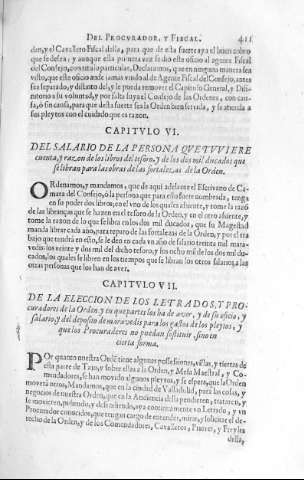 DEL PROCURADOR, Y FISCAL. 421
den, y el Cavallero Fiscal della, para que de esta suerte aya el buen cobro
que se desea; y aunque esta primera vez se dió este oficio al agente Fiscal
del Consejo, como a particular, Declaramos, que en ninguna manera sea
visto, que este oficio ande jamas unido al de Agente Fiscal del Consejo, antes
sea separado, y distinto del, y le pueda remover el Capitulo General, y Difi-
nitorio a su voluntad, y por falta suya el Consejo de las Ordenes, con cau-
sa, ò sin causa, para que desta suerte sea la Orden bien servida, y se atienda a
sus pleytos con el cuidado que es razon.
CAPITVLO VI.
DEL SALARIO DE LA PERSONA QUE TVVIERE
cuenta, y razon de los libros del tesoro, y de los dos mil ducados que
se libran para las obras de las fortalezas de la Orden.
ORdenamos, y mandamos, que de aqui adelante el Escrivano de Ca-
mara del Consejo, ò la persona que para ello fuere nombrada, tenga
en su poder dos libros; en el vno de los quales assiente, y tome la razon
de las libranças que se hazen en el tesoro de la Orden, y en el otro assiente, y
tome la razon de lo que se libra en los dos mil ducados, que su Magestad
manda librar cada año, para reparo de las fortalezas de la Orden, y por el tra
bajo que tendrà en esto, se le den en cada vn año de salario treinta mil mara-
vedis: los veinte y dos mil del dicho tesoro, y los ocho mil de los dos mil du-
cados, los quales se libren en los tiempos que se libran los otros salarios a las
otras personas que los han de aver.
CAPITVLO VII.
DE LA ELECCION DE LOS LETRADOS, Y PRO-
curadores de la Orden, y en que partes los ha de aver, y de su oficio, y
salario, y del deposito de maravedis para los gastos de los pleytos, y
que los Procuradores no puedan sostituir, sino en
cierta forma.
POr quanto nuestra Ordẽ tiene algunas possessiones, villas, y tierras de
esta parte de Tajo, y sobre ellas a la Orden, y Mesa Maestral, y Co-
mendadores, se han movido algunos pleytos, y se espera, que la Orden
moverà otros, Mandamos, que en la ciudad de Valladolid, para las cosas, y
negocios de nuestra Orden, que en la Audiencia della penden, trataren, y
se movieren, pidiendo, y defendiendo, aya continuamente vn Letrado, y vn
Procurador conocidos, que tengan cargo de entender, mirar, y solicitar el de-
recho de la Orden, y de los Comendadores, Cavalleros, Priores, y Freyles
della,